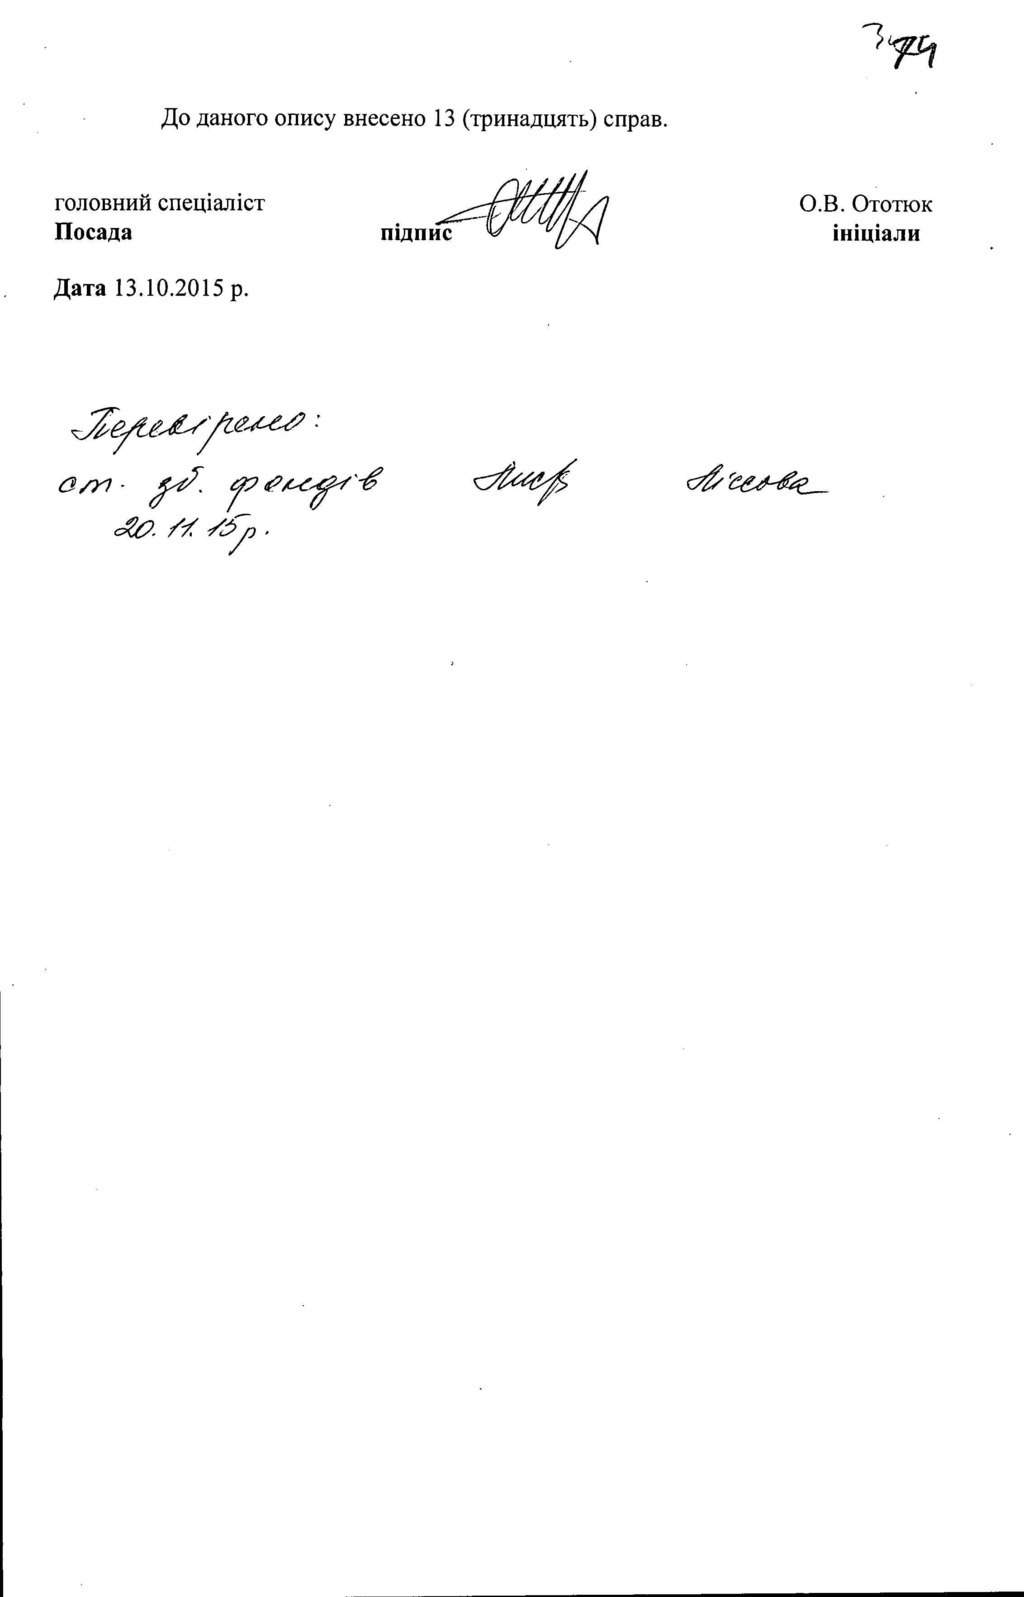 До даного опису внесено 13 (тринадцять) справ.
головний спеціаліст О.В. Ототюк
Посада підпис ініціали
Дата 13.10.2015 р.
Перевірено:
ст. зб. фондів
20. 11. 15р.